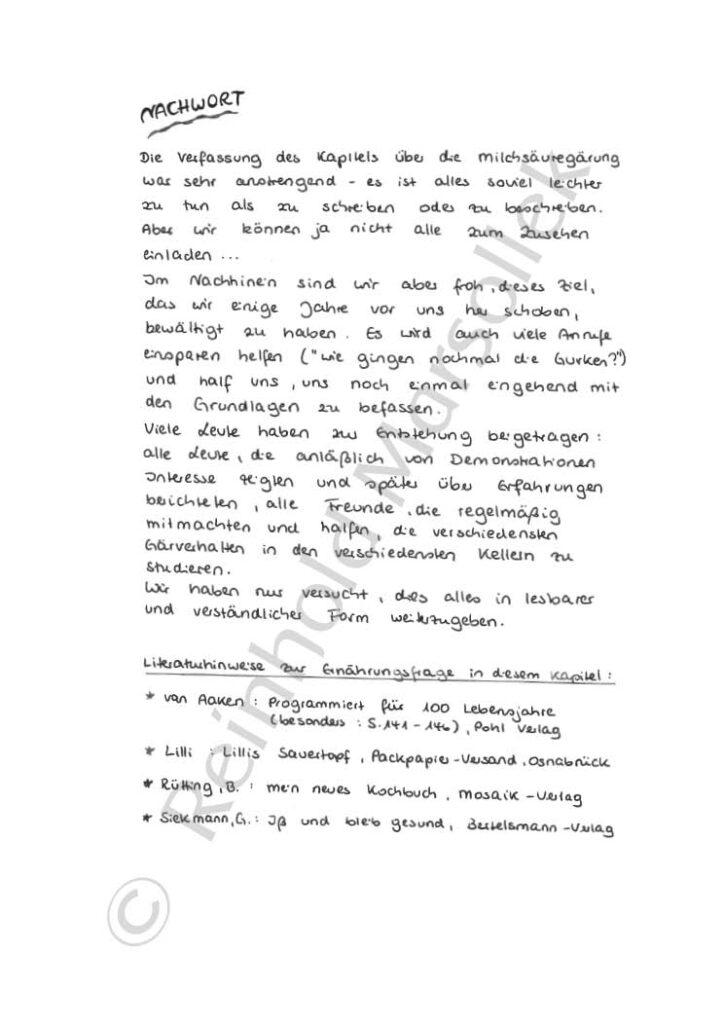 NACHWORT
Die Verfassung des Kapitels über die Milchsäuregärung
war sehr anstrengend - es ist alles soviel leichter
zu tun als zu schreiben oder zu beschreiben.
Aber wir können ja nicht alle zum Zusehen
einladen ...
Im Nachhinein sind wir aber froh, dieses Ziel,
das wir einige Jahre vor uns her schoben,
bewältigt zu haben. Es wird auch viele Anrufe
einsparen helfen ("wie gingen nochmal die Gurken?")
und half uns, uns noch einmal eingehend mit
den Grundlagen zu befassen.
Viele Leute haben zur Entstehung beigetragen:
alle Leute, die anläßlich von Demonstrationen
Interesse zeigten und später über Erfahrungen
berichteten, alle Freunde, die regelmäßig
mitmachten und halfen, die verschiedensten
Gärverhalten in den verschiedensten Kellern zu
studieren.
Wir haben nur versucht, dies alles in lesbarer
und verständlicher Form weiterzugeben.
Literaturhinweise zur Ernährungsfrage in diesem Kapitel:
* van Aaken: Programmiert für 100 Lebensjahre
(besonders: S.141-146), Pohl Verlag
* Lilli: Lillis Sauertopf, Packpapier-Versand, Osnabrück
* Rütting, B.: mein neues Kochbuch, Mosaik-Verlag
* Siekmann, G.: Iß und bleib gesund, Bertelsmann-Verlag
© Reinhold Marsollek